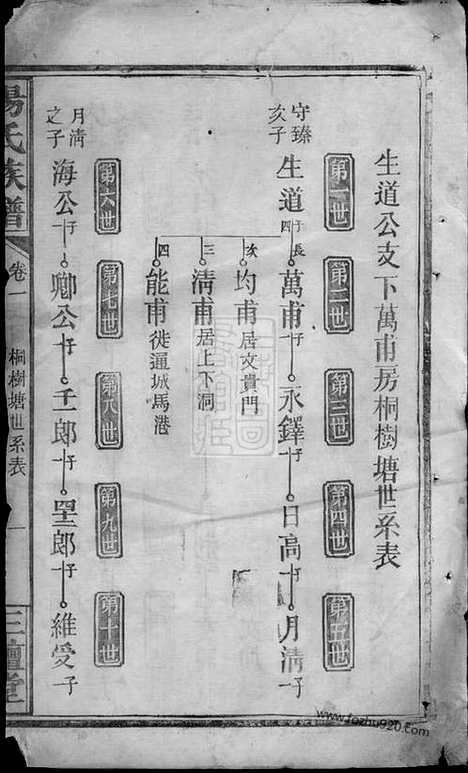 生道公支下萬甫房桐樹塘世系表
第一世 第二世 第三世 第四世 第五世
守臻次子
生道 子四 長萬甫 一子 永鐸 一子 日高 一子 月清 一子
次 均甫 居文貴門
三 清甫 居上下洞
四 能甫 徙通城馬港
第六世 第七世 第八世 第九世 第十世
月清之子
海公 一子 卿公 一子 千一郎 一子 里郎 一子 維受 一子
楊氏族譜 卷一 桐樹塘世系表 一 三鱣堂
www.fozhu920.com